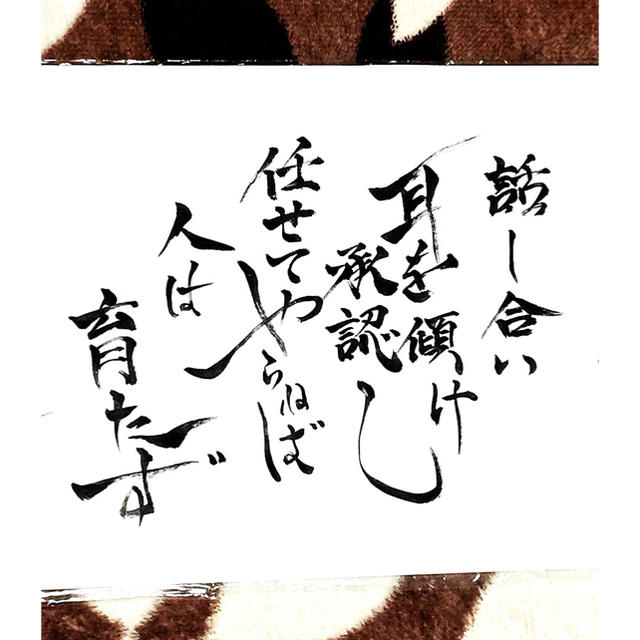 話し合い
耳を傾け
承認し
任せてやらねば
人は
育たず